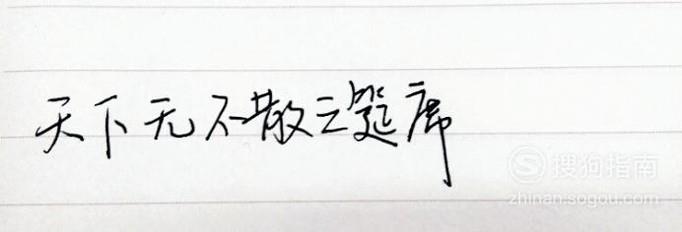 天下无不散之筵席
搜狗指南
zhinan.sogou.com